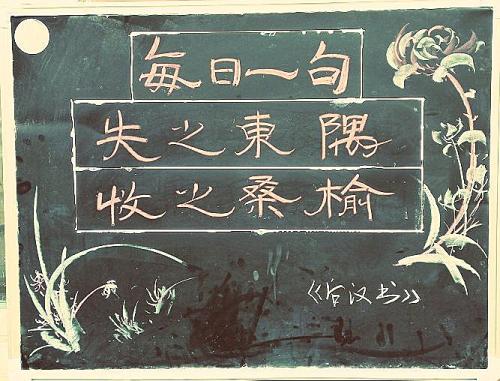 每日一句
失之東隅
收之桑榆
《后汉书》